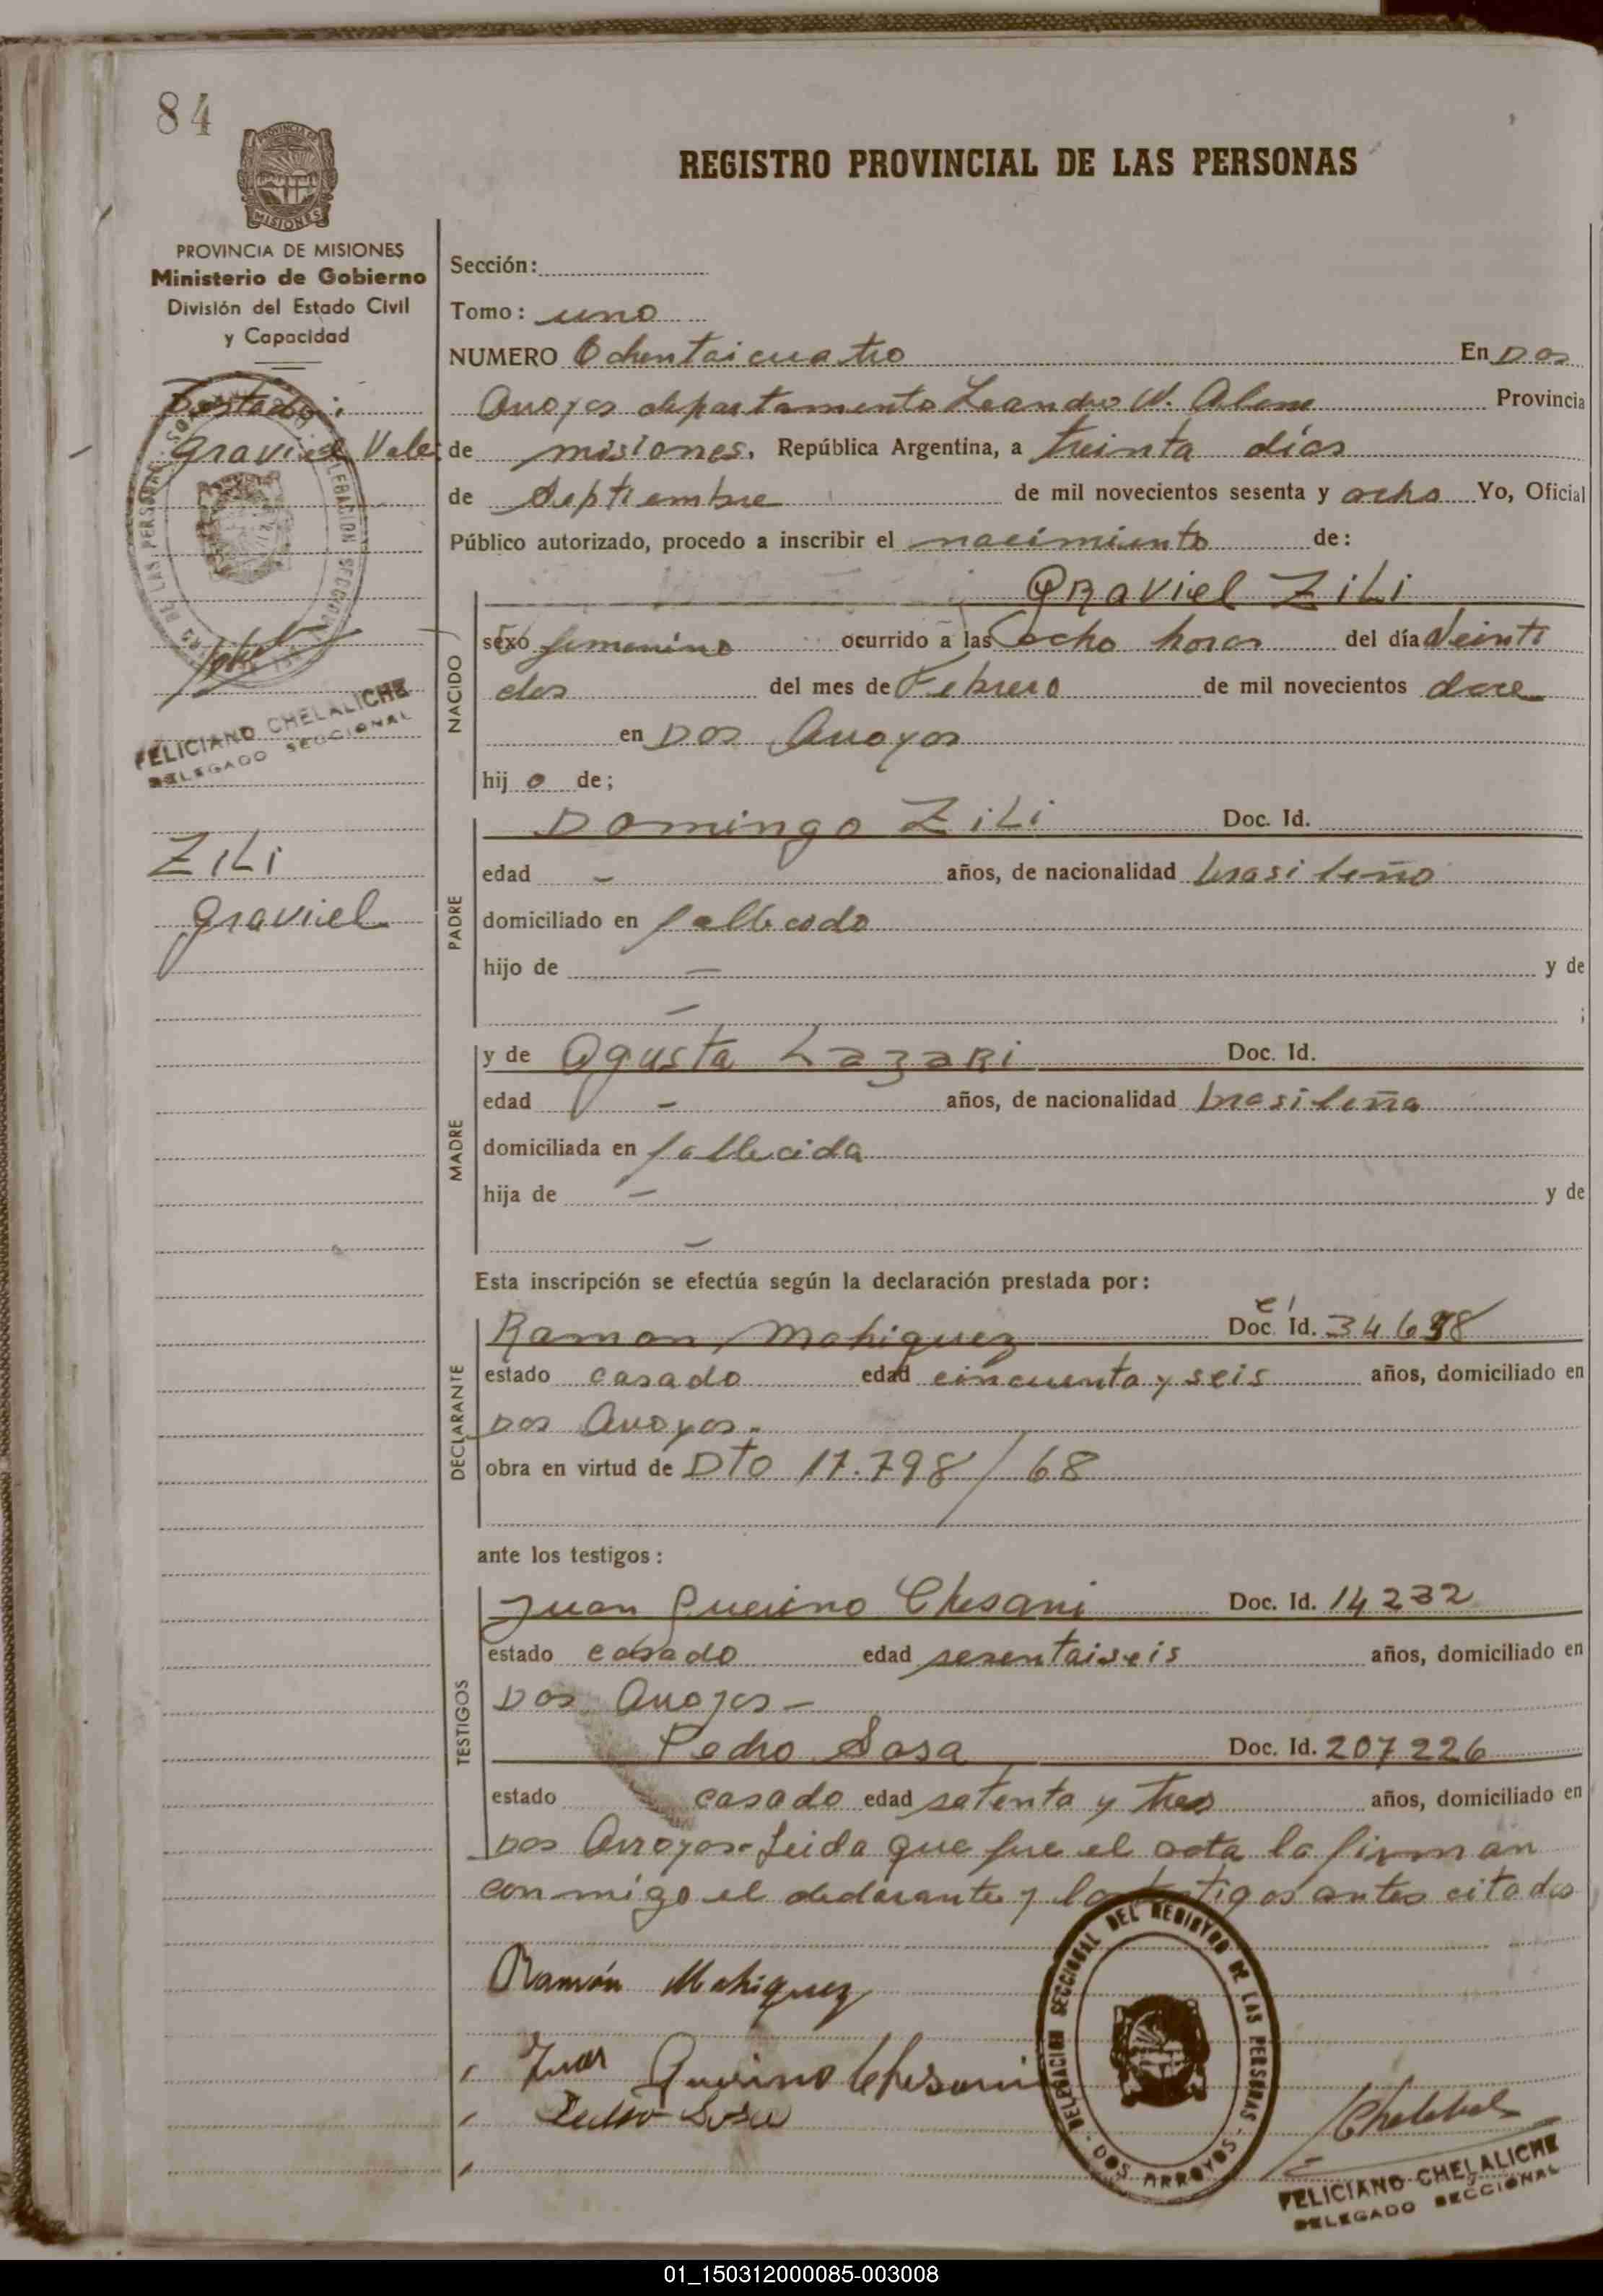 84
REGISTRO PROVINCIAL DE LAS PERSONAS
PROVINCIA DE MISIONES
Ministerio de Gobierno
División del Estado Civil
y Capacidad
Testado:
Graviel Vale
FELICIANO CHELALICHE
DELEGADO SECCIONAL
ZiLi
Graviel
Sección:
Tomo: uno
NUMERO Ochentaicuatro En Dos
Arroyos departamento Leandro N. Alem Provincia
de misiones. República Argentina, a treinta días
de Septiembre de mil novecientos sesenta y ocho Yo, Oficial
Público autorizado, procedo a inscribir el nacimiento de:
GRaviel ZiLi
NACIDO
sexo femenino ocurrido a las ocho horas del día Veinti
dos del mes de Febrero de mil novecientos doce
en Dos Arroyos
hij o de;
PADRE
Domingo ZiLi Doc. Id.
edad - años, de nacionalidad brasileño
domiciliado en fallecido
hijo de - y de
- ;
MADRE
y de Agusta LazaRi Doc. Id.
edad - años, de nacionalidad brasileña
domiciliada en fallecida
hija de - y de
-
Esta inscripción se efectúa según la declaración prestada por:
DECLARANTE
Ramon Mohiquez Doc. Id. 34698
estado casado edad cincuenta y seis años, domiciliado en
Dos Arroyos.
obra en virtud de DTO 17.798/68
ante los testigos:
TESTIGOS
Juan Guerino Chesani Doc. Id. 14232
estado casado edad sesentaiseis años, domiciliado en
Dos Arroyos -
Pedro Sosa Doc. Id. 207226
estado casado edad setenta y tres años, domiciliado en
Dos Arroyos. Leida que fue el acta la firman
conmigo el declarante y los testigos antes citados
Ramón Mohiquez
Juan Guerino Chesani
Pedro Sosa
DELEGACION SECCIONAL DEL REGISTRO DE LAS PERSONAS
- DOS ARROYOS -
FELICIANO CHELALICHE
DELEGADO SECCIONAL
01_150312000085-003008